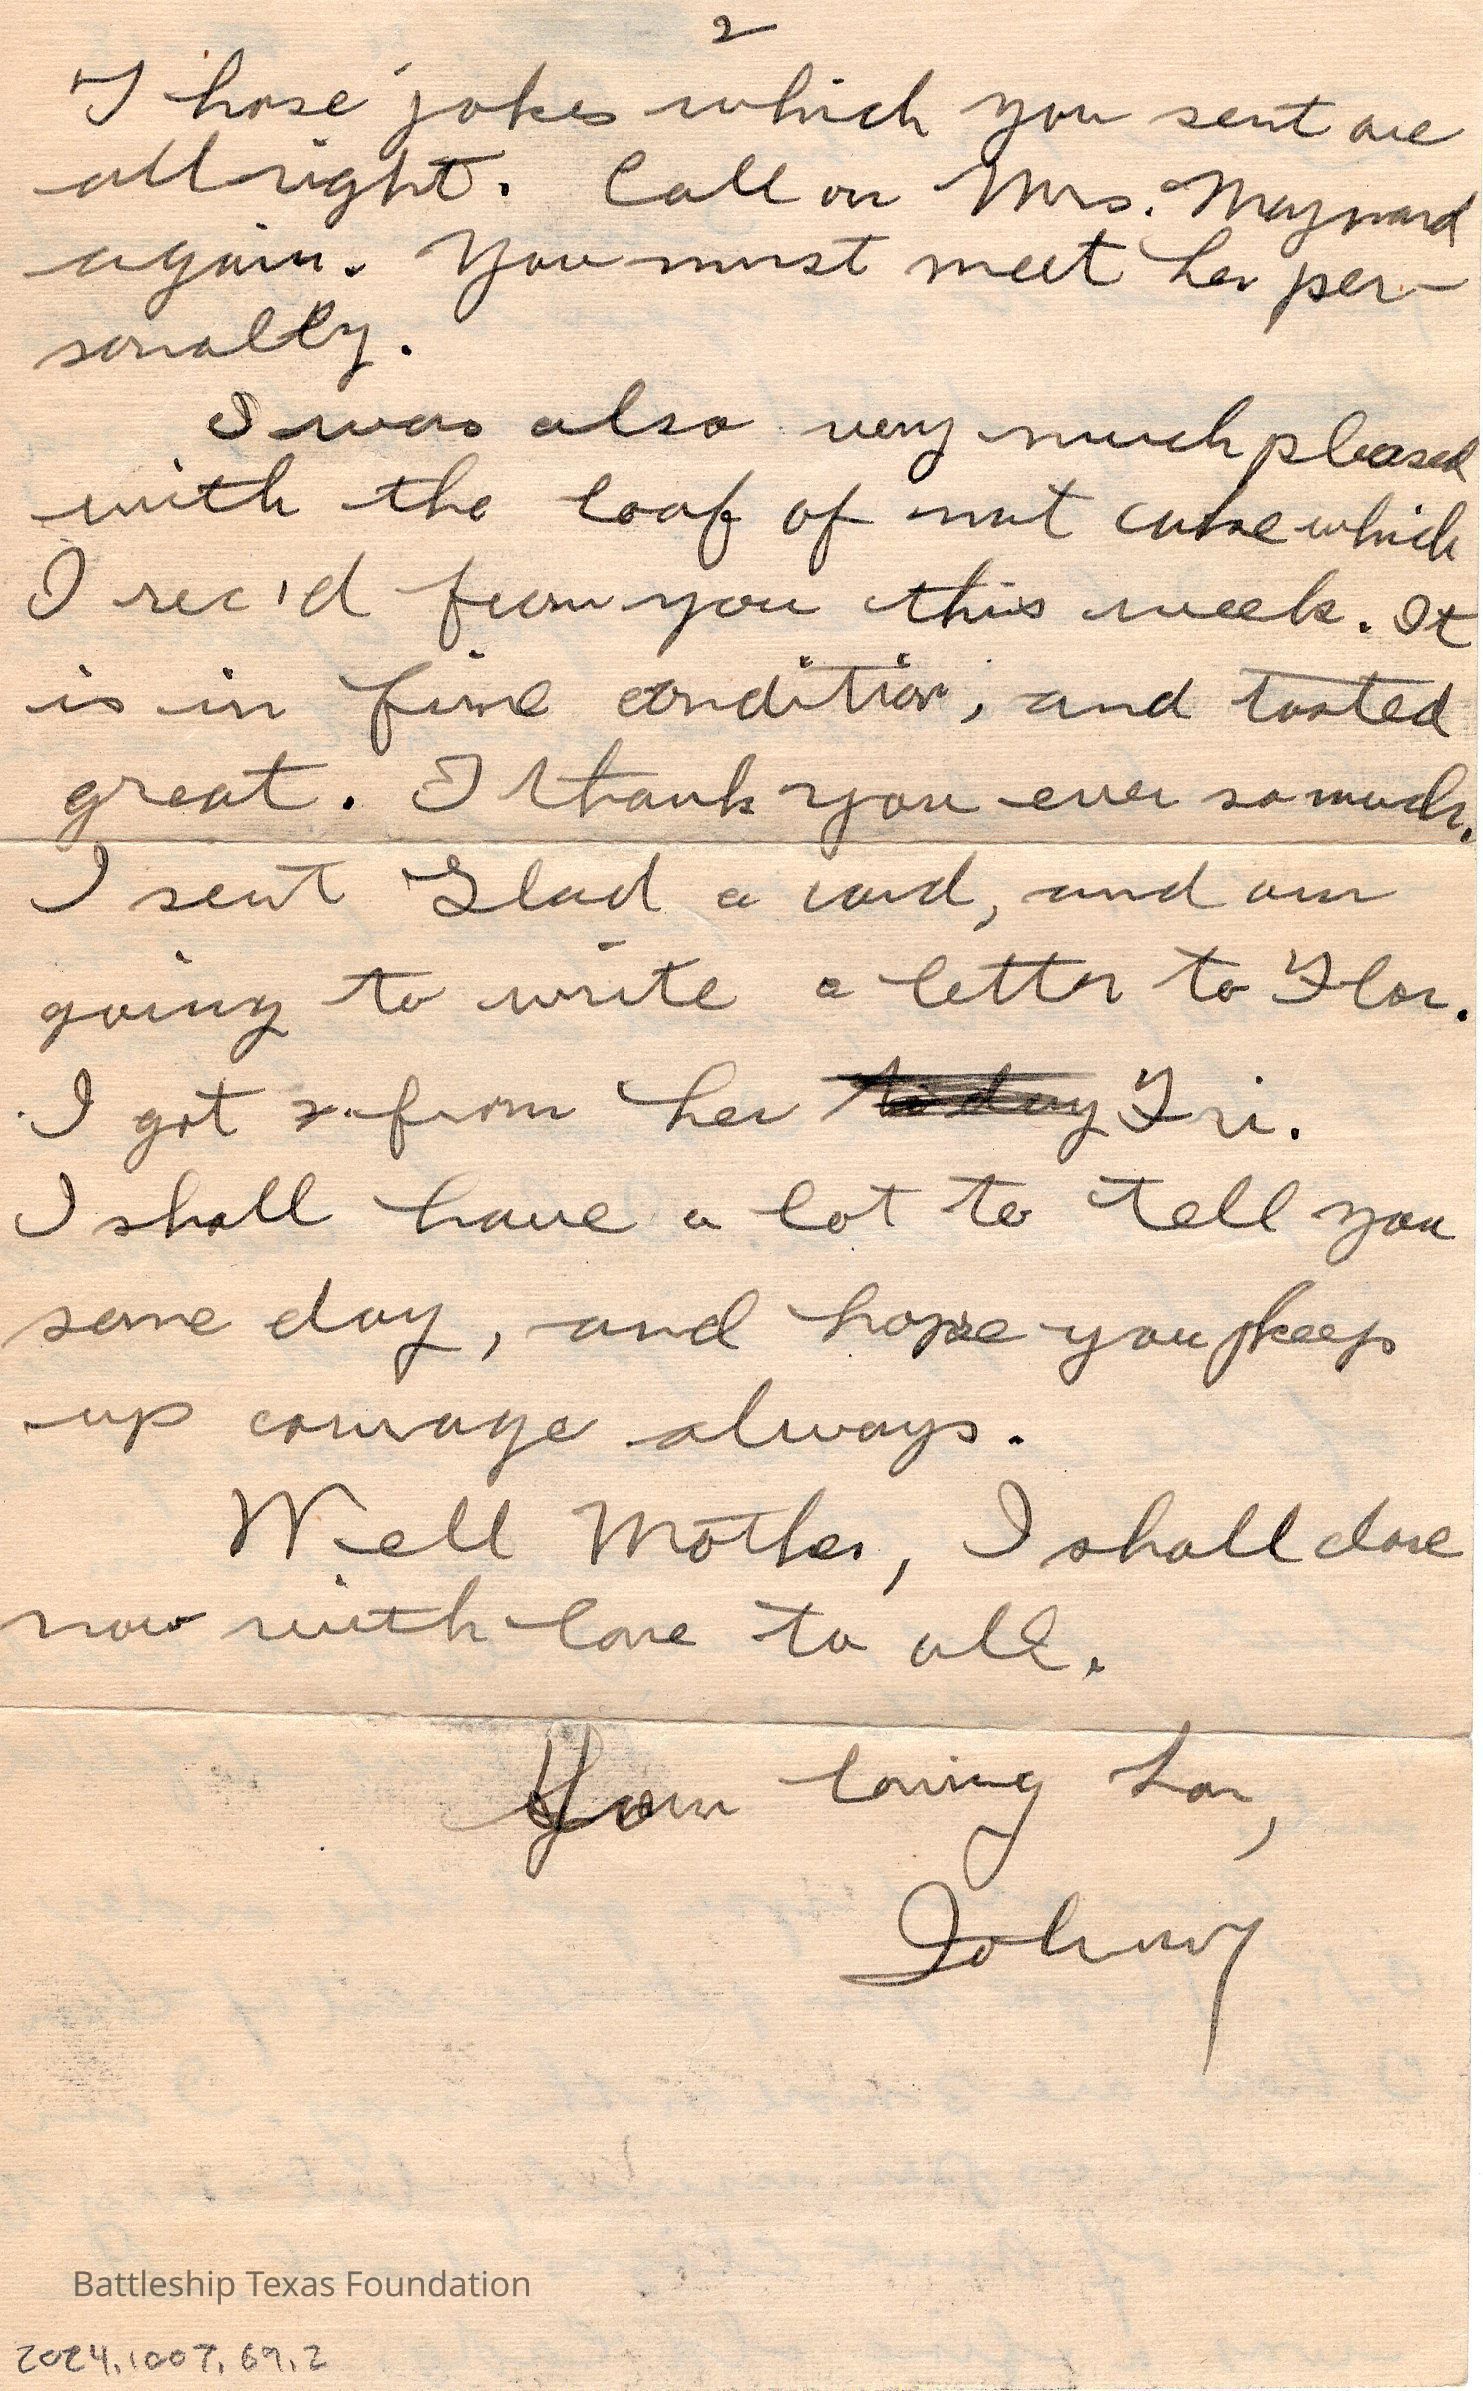 2
Those jokes which you sent are
all right. Call on Mrs. Maynard
again. You must meet her per-
sonally.
I was also very much pleased
with the loaf of nut cake which
I rec'd from you this week. It
is in fine condition, and tasted
great. I thank you ever so much.
I sent Glad a card, and am
going to write a letter to Flor.
I got 2 from her to day Fri.
I shall have a lot to tell you
some day, and hope you keep
up courage always.
Well Mother, I shall close
now with love to all.
Your loving son,
Johnny
Battleship Texas Foundation
2024.1007.69.2